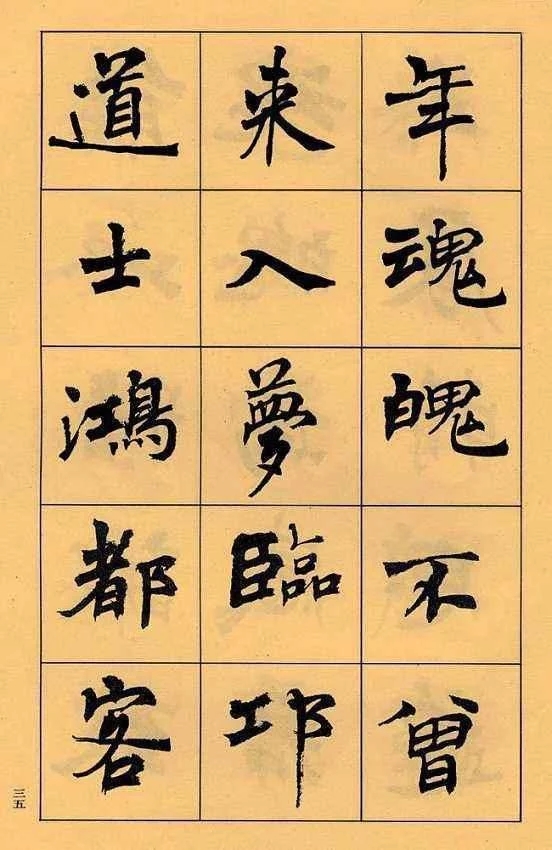 年魂魄不曾
来入夢臨邛
道士鴻都客
三五